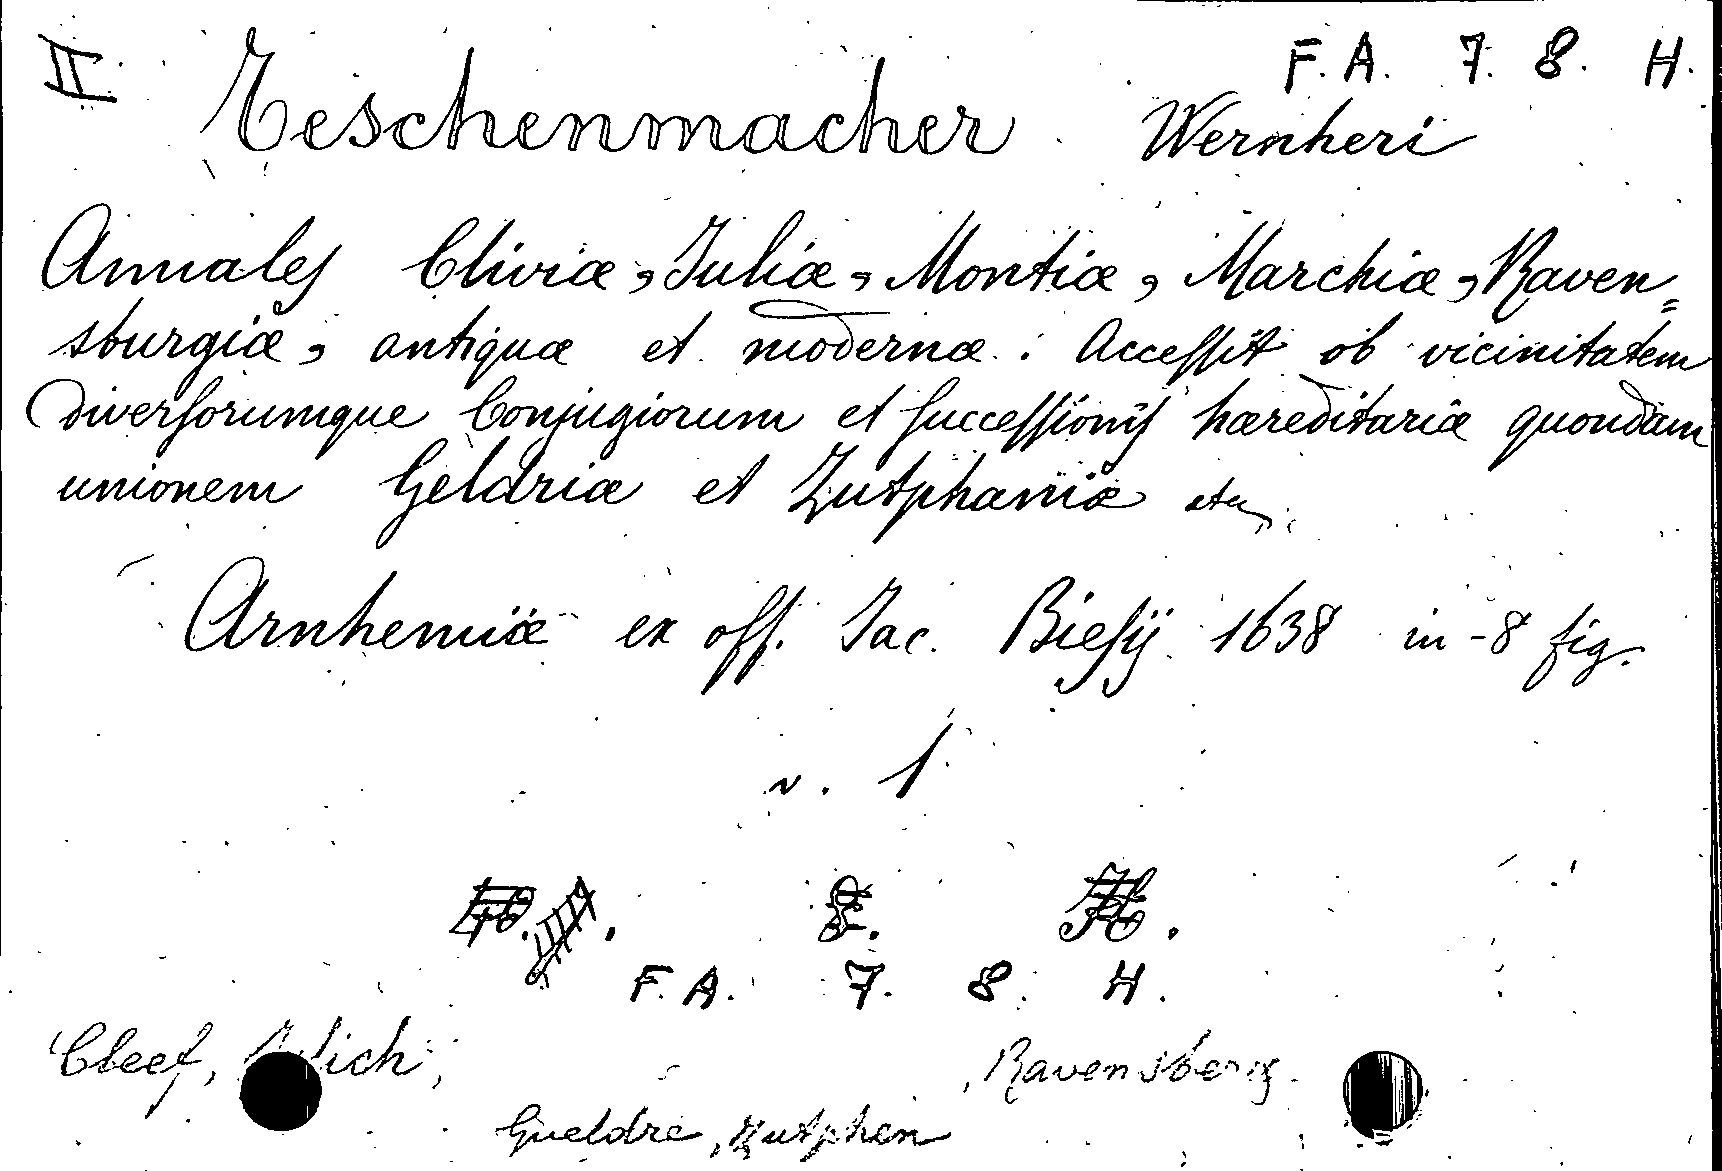 II F. A. 7. 8. H.
Teschenmacher Wernheri
Annales Cliviæ, Juliæ, Montiæ, Marchiæ, Raven=
sburgiæ, antiquæ et modernæ. : Accessit ob vicinitatem
diversorumque Conjugiorum et successionis hæreditariæ quondam
unionem Geldriæ et Zutphaniæ etc.
Arnhemiæ ex off. Jac. Biesij 1638 in-8 fig.
v. 1
F. A. 7. 8. H.
Cleef, Ravensberg.
Gueldre, Zutphen